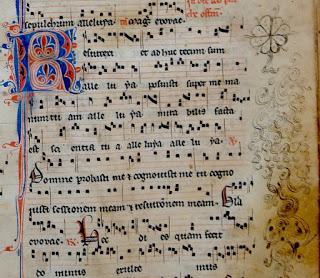 sepulchrum alleluya. euouae.
Resurrexi et adhuc tecum sum
alle lu ya posuisti super me ma
num tu am alle lu ya mira bilis facta
est sci entia tu a alle luya alle lu ya. V.
Domine probasti me & cognouisti me tu cogno
uisti sessionem meam & resurrectionem meam. Gla
euouae. Hec di es quam fecit
do minus exulte mus